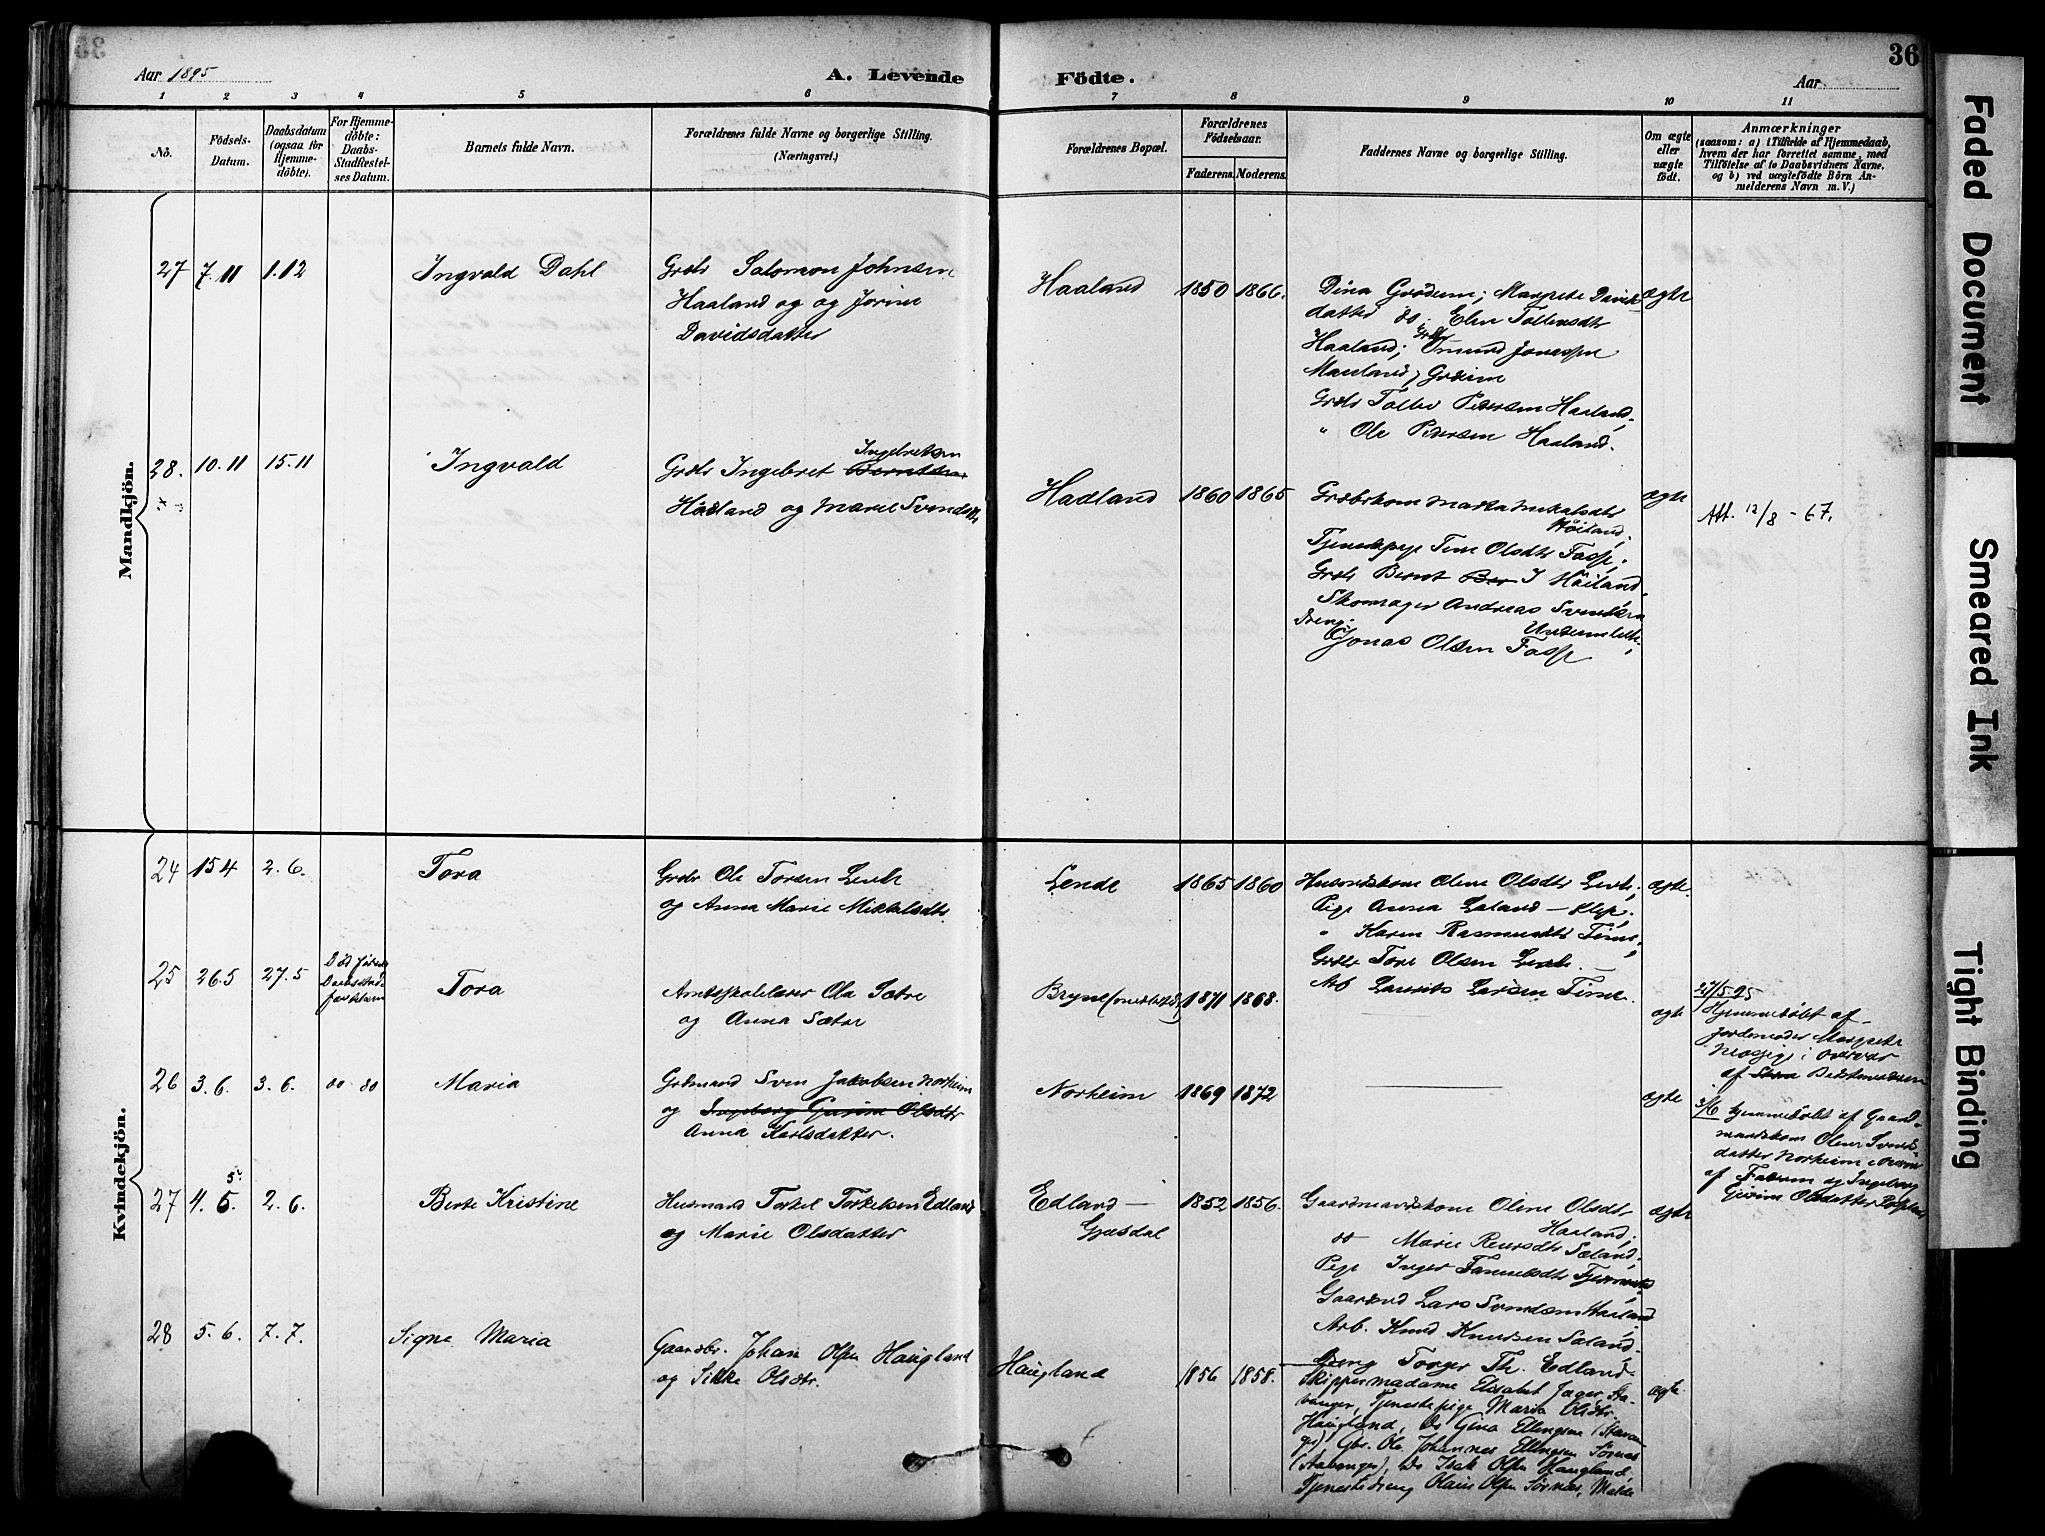 Aar 1895
A. Levende
Födte.
Aar
36
1 2 3 4 5 6 7 8 9 10 11
No.
Födsels-
Datum.
Daabsdatum
(ogsaa for
Hjemme-
döbte).
For Hjemme-
döbte:
Daabs-
Stadfæstel-
ses Datum.
Barnets fulde Navn.
Forældrenes fulde Navne og borgerlige Stilling.
(Næringsvei.)
Forældrenes Bopæl.
Forældrenes
Födselsaar.
Faderens. Moderens.
Faddernes Navne og borgerlige Stilling.
Om ægte
eller
uægte
födt.
Anmærkninger
(saasom: a) i Tilfælde af Hjemmedaab,
hvem der har forrettet samme, med
Tilföielse af to Daabsvidners Navne.
og b) ved uægtefödte Börn An-
melderens Navn m. V.)
Mandkjön.
27 7.11 1.12 Ingvald Dahl
Grdbr Salomon Johnsen
Haaland og og Jorine
Davidsdatter
Haaland 1850 1866.
Dina Grödem; Margrete Davids
datter do. Elen Tollevsdtr
Haaland; Grdbr Omund Jonassen
Mauland,
Grdbr Tollev Pedersen Haaland,
" Ole Pedersen Haaland.
ægte
28. 10.11 15.11 Ingvald
Ingebretsen
Grdbr Ingebret Berntsen
Haaland og Marie Svendsdtr
Haaland 1860 1865
Grdbrkone Marta Mikalsdtr
Höiland,
Tjenestepige Tine Olsdtr Fosse,
Grdbr Bernt Ber I Höiland.
Skomager Andreas Svendsen
Undemlille,
Dreng Jonas Olsen Fosse
ægte
Att. 12/8 - 67.
Kvindekjön.
24 15 4 2.6. Tora
Grdbr Ole Torsen Lende
og Anna Marie Mikkalsdtr
Lende 1865 1860
Husmdskone Olene Olsdtr Lende,
Pige Anna Laland - Klep,
" Karen Rasmusdtr Time,
Grdbr Tore Olsen Lende
Arb Lauritz Larsen Time
ægte
25 26.5 27.5 Död för
Tora
Amtsskolelærer Ole Sætre
og Anna Sætre
Bryne 1871 1868.
ægte
27/5 95
Hjemmedöbt af
Jordemoder Margrete
i Overvær
af Bedstemoderen
26 3.6. 3.6. do do Maria
Grdmand Sven Jakobsen Norheim
og Ingeborg Gurine Olsdtr
Anna Karlsdatter.
Norheim 1869 1872
ægte
3/6 hjemmedöbt af Gaard-
mandskone Olene Svends-
datter Norheim i Overvær
af Faderen og Ingeborg
Olsdatter
27 4.5. 5 2.6. Berte Kristine
Husmand Torkel Torkelsen Edland
og Marie Olsdatter
Edland -
Gjesdal
1852 1856.
Gaardmandskone Olene Olsdtr
Haaland,
do Marie Reiersdtr Sæland,
Pige Inger
Gaardmd Lars Svendsen Haaland
Arb. Knud Knudsen Sæland,
Dreng Torger Th. Edland.
ægte
28 5.6. 7.7. Signe Maria
Gaardbr. Johan Olsen Haugland
og Sikke Olsdtr.
Haugland 1856 1858.
Skippermadame Elisabet Jager, Sta-
vanger, Tjenestepige Maria Olsdtr.
Haugland, Do Gina Ellingsen (Stavan-
ger), Gbr. Ole Johannes Ellingsen Sörnes
(Stavanger), Do Isak Olsen Haugland.
Tjenestedreng Olaus Olsen Sörnes, Malde
ægte
Faded Document
Smeared Ink
Tight Binding